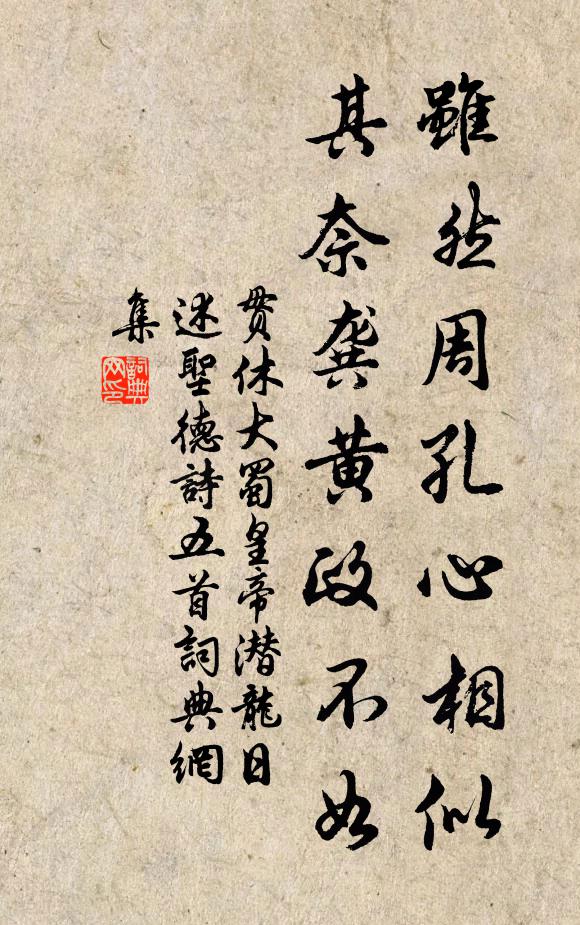 雖然周孔心相似
其奈龔黄政不如
贯休大蜀皇帝潜龍日
述聖德詩五首詞典網
集
詞典
网印